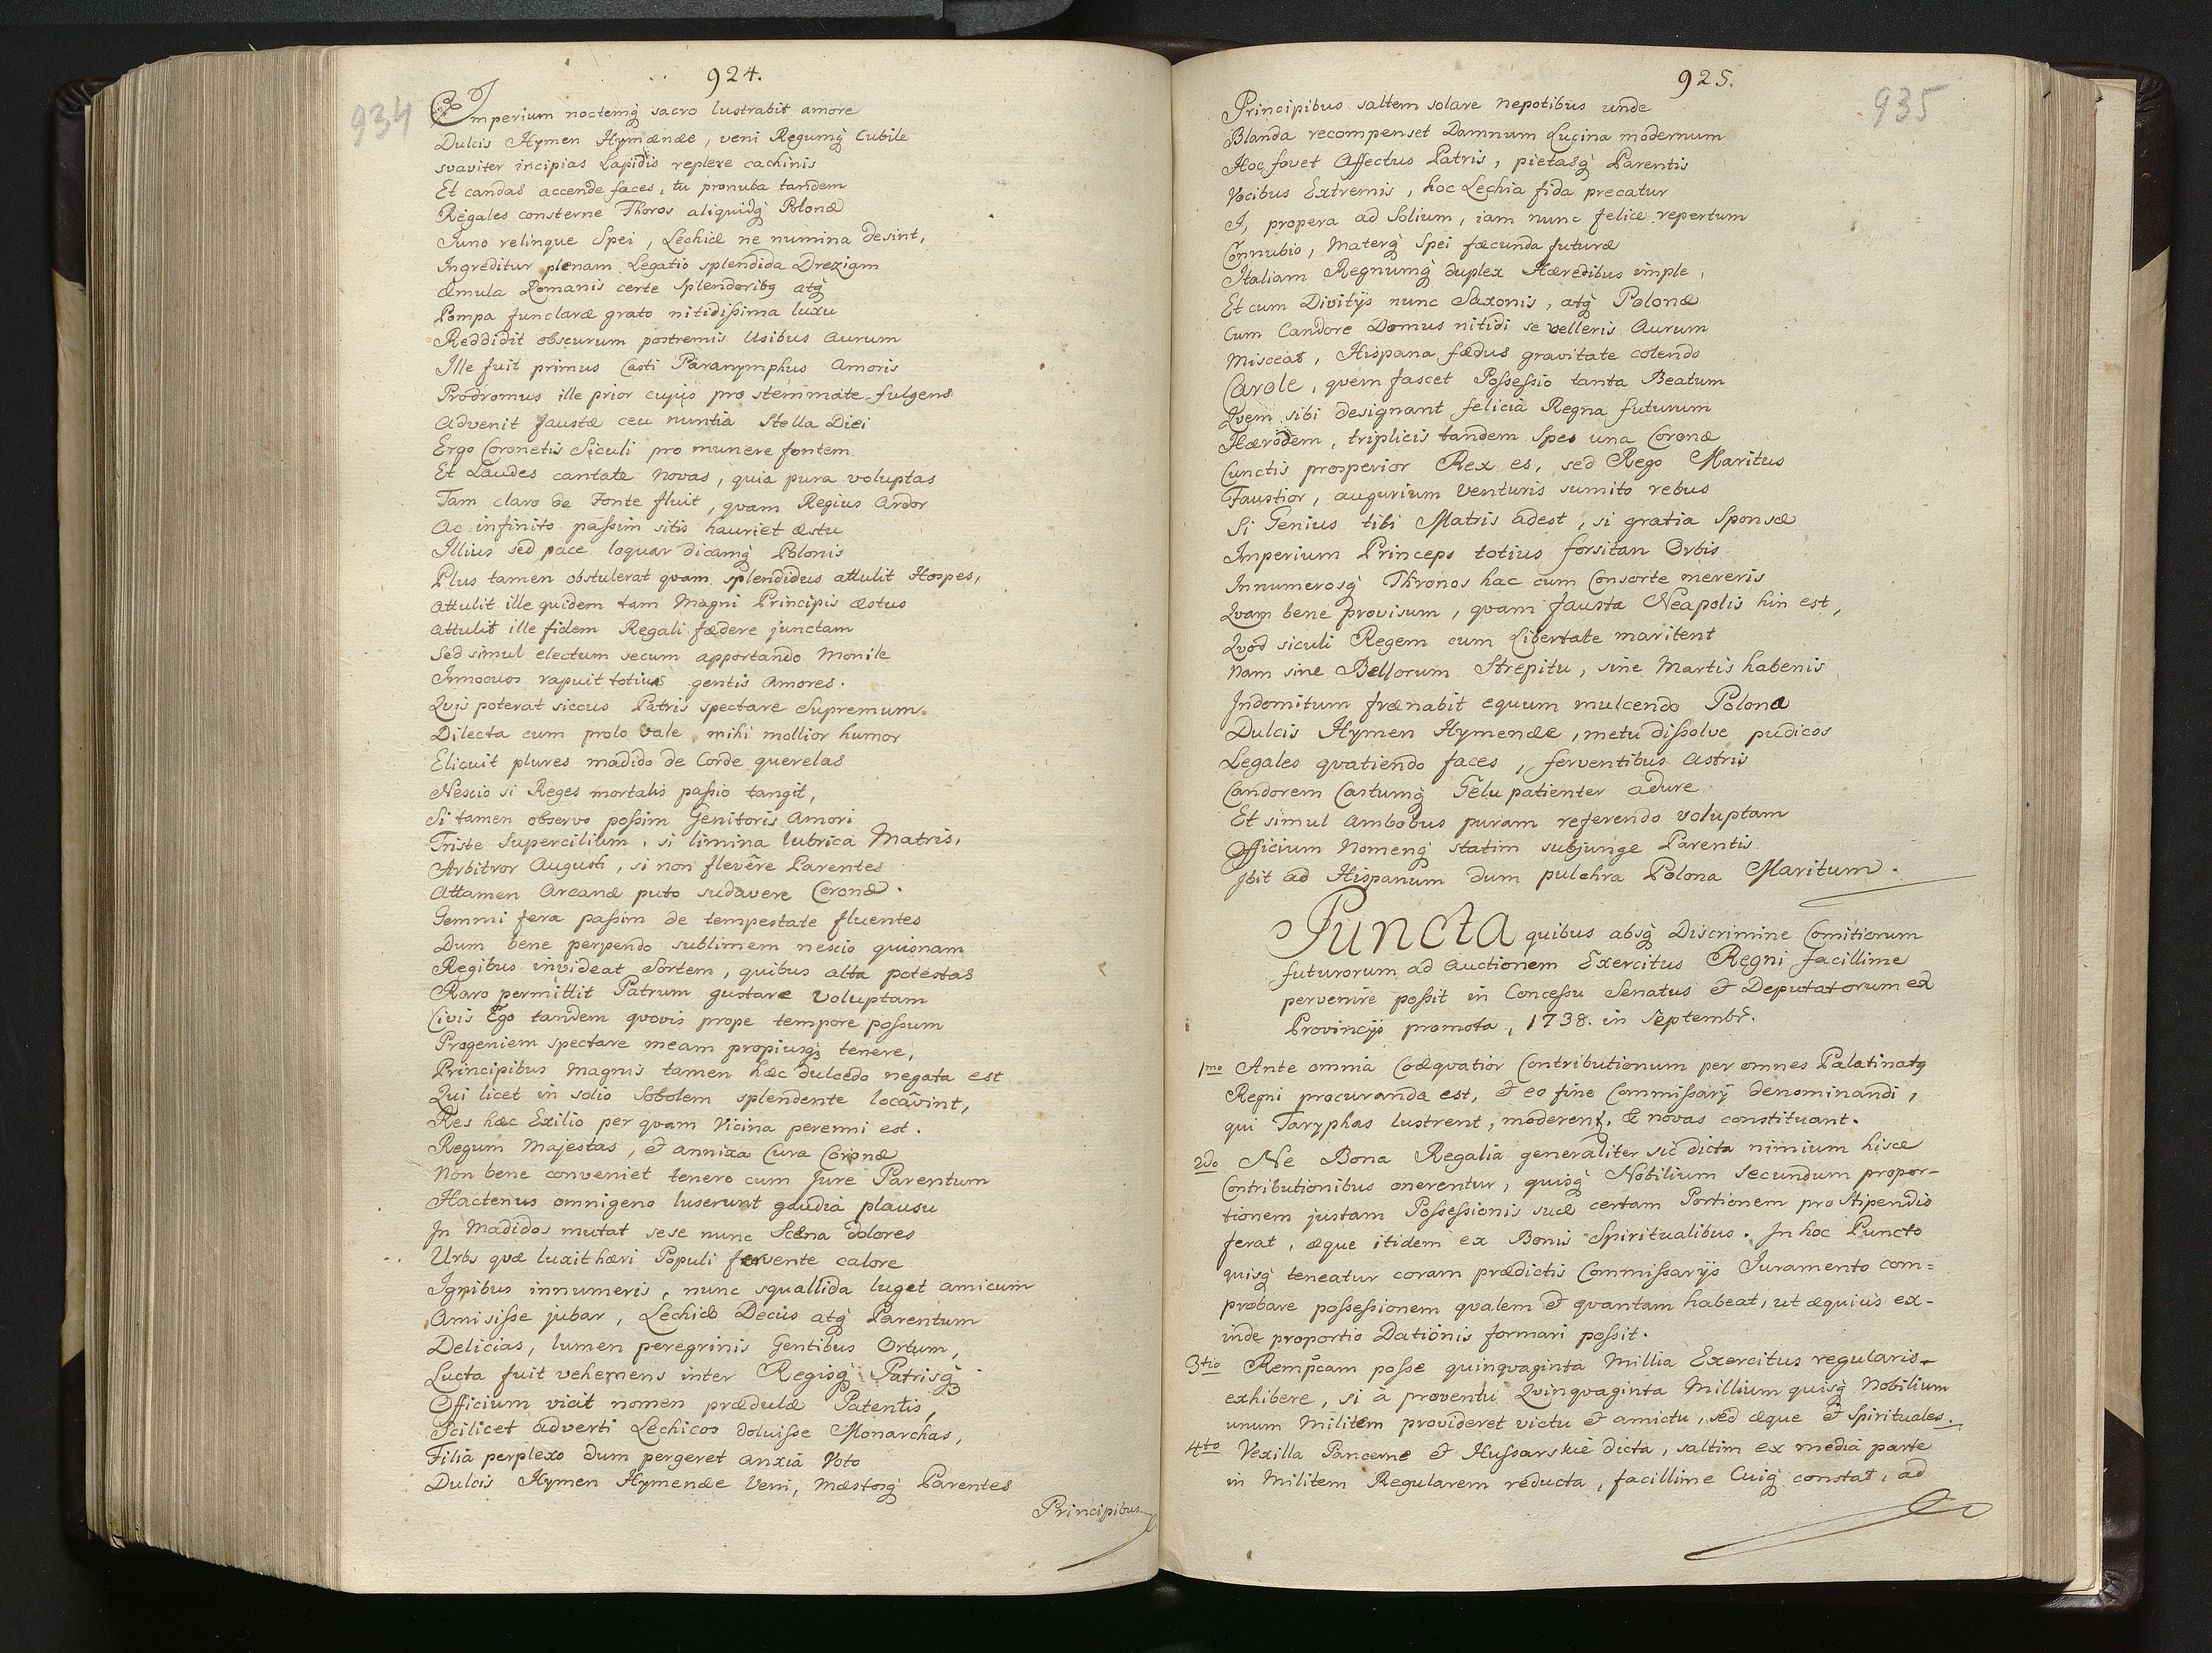 924.
934
Imperium noctemq́ sacro lustrabit amore
Dulcis Hymen Hymænæe, veni Regumq́ Cubile
svaviter incipias Lapidis replere cachinis
Et candas accende faces, tu pronuba tandem
Regales consterne Thoros aliquidq́ Polonæ
Juno relinque Spei, Lechiæ ne numina desint,
Ingreditur plenam Legatio splendida Dreziam
Æmula Romanis certe Splendoribq atq́
Pompa junclaræ grato nitidissima luxu
Reddidit obscurum postremis Usibus Aurum
Ille fuit primus Casti Paranymphus Amoris
Prodromus ille prior cujus pro stemmate fulgens
Advenit faustæ ceu nuntia Stella Diei
Ergo Coronetis Siculi pro munere fontem
Et Laudes cantate Novas, quia pura voluptas
Tam claro de Fonte fluit, quam Regius Ardor
Ac infinito passim sitis hauriet æstu
Illius sed pace loquar dicamq́ Polonis
Plus tamen obstulerat quam splendidus attulit Hospes,
Attulit ille quidem tam Magni Principis æstus
Attulit ille fidem Regali fædere junctam
Sed simul electum secum apportando Monile
Innocuos rapuit totius gentis Amores.
Qvis poterat siccus Patris spectare Supremum
Dilecta cum prole Vale, mihi mollior humor
Elicuit plures madido de Corde querelas
Nescio si Reges mortalis passio tangit,
Si tamen observo possim Genitoris Amori
Triste Supercilium, si limina lubrica Matris,
Arbitror Augusti, si non flevêre Parentes
Attamen Arcanæ puto sudavere Coronæ.
Gemmi fera passim de tempestate fluentes
Dum bene perpendo sublimem nescio quisnam
Regibus invideat Sortem, quibus alta potestas
Raro permittit Patrum gustare Voluptam
Civis Ego tandem quovis prope tempore possum
Progeniem spectare meam propiusq́ tenere,
Principibus Magnis tamen hæc dulcedo negata est
Qui licet in solio Sobolem splendente locâvint,
Res hæc Exilio per quam Vicina perenni est.
Regum Majestas, & annixa Cura Coronæ
Non bene conveniet tenero cum Jure Parentum
Hactenus omnigeno luserunt gaudia plausu
In Madidos mutat sese nunc Scæna dolores
Urbs quæ luxit hæri Populi fervente calore
Ignibus innumeris, nunc squallida luget amicum
Amisisse jubar, Lechiæ Decus atq́ Parentum
Delicias, lumen peregrinis Gentibus Ortum,
Lucta fuit vehemens inter Regisq́ Patrisq́
Officium vicit nomen prædulæ Patentis,
Scilicet adverti Lechicos doluisse Monarchas,
Filia perplexo dum pergeret anxia Voto
Dulcis Hymen Hymenæe Veni, Mæstosq́ Parentes
Principibus
925.
935
Principibus saltem solare Nepotibus unde
Blanda recompenset Damnum Lucina modernum
Hoc fovet Affectus Patris, pietasq́ Parentis
Vocibus Extremis, hoc Lechia fida precatur
I, propera ad Solium, iam nunc felice repertum
Connubio, Materq́ Spei fæcunda futuræ
Italiam Regnumq́ duplex Hæredibus imple,
Et cum Divitijs nunc Saxonis, atq́ Polonæ
Cum Candore Domus nitidi se velleris Aurum
Misceat, Hispana fædus gravitate colendo
Carole, quem fascet Possessio tanta Beatum
Qvem sibi designant felicia Regna futurum
Hærodem, triplicis tandem Spes una Coronæ
Cunctis prosperior Rex es, sed Rego Maritus
Faustior, augurium Venturis sumito rebus
Si Genius tibi Matris adest, si gratia Sponsæ
Imperium Princeps totius forsitan Orbis
Innumerosq́ Thronos hac cum Consorte mereris
Qvam bene provisum, quam fausta Neapolis hin est,
Qvod siculi Regem cum Libertate maritent
Nam sine Bellorum Strepitu, sine Martis habenis
Indomitum frænabit equum mulcendo Polona
Dulcis Hymen Hymenæe, metu dissolve pudicos
Legales qvatiendo faces, ferventibus Astris
Candorem Castumq́ Gelu patienter adure
Et simul Ambobus puram referendo voluptam
Officium Nomenq́ statim subjunge Parentis
Ibit ad Hispanum dum pulchra Polona Maritum.
Puncta quibus absq́ Discrimine Comitiorum
futurorum ad Auctionem Exercitus Regni facillime
pervenire possit in Concessu Senatus & Deputatorum ex
Provincijs promota, 1738. in Septembr.
1mo Ante omnia Coæqvatior Contributionum per omnes Palatinatq
Regni procuranda est, & eo fine Commissarij denominandi,
qui Taryphas lustrent, moderent, & novas constituant.
2do Ne Bona Regalia generaliter sic dicta nimium hisce
Contributionibus onerentur, quisq́ Nobilium Secundum propor-
tionem justam Possessionis suæ certam Portionem pro Stipendio
ferat, æque itidem ex Bonis Spiritualibus. In hoc Puncto
quisq́ teneatur coram prædictis Commissarijs Juramento com=
probare possessionem qvalem & qvantam habeat, ut æquius ex-
inde proportio Dationis formari possit.
3tio Rempcam posse quinqvaginta Millia Exercitus regularis
exhibere, si à proventu Qvinqvaginta Millium quisq́ Nobilium
unum Militem provideret victu & amictu, sed æque & Spirituales.
4to Vexilla Pancerne & Hussarskie dicta, saltim ex media parte
in Militem Regularem reducta, facillime Cuiq́ constat, ad